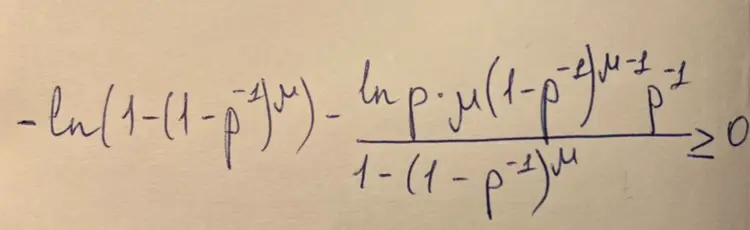 -ln(1-(1-p^{-1})^μ) - \frac{ln p · μ(1-p^{-1})^{μ-1} p^{-1}}{1-(1-p^{-1})^μ} ≥ 0